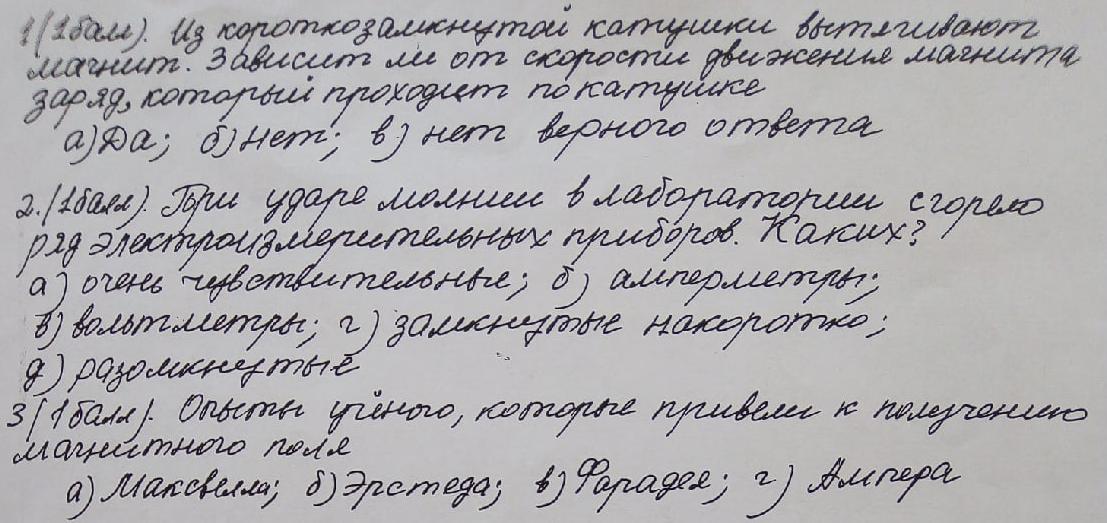 1(1балл). Из короткозамкнутой катушки вытягивают
магнит. Зависит ли от скорости движения магнита
заряд, который проходит по катушке
а) Да; б) Нет; в) нет верного ответа
2.(1балл). При ударе молнии в лаборатории сгорело
ряд электроизмерительных приборов. Каких?
а) очень чувствительные; б) амперметры;
в) вольтметры; г) замкнутые накоротко;
д) разомкнутые
3(1балл). Опыты учёного, которые привели к получению
магнитного поля
а) Максвелла; б) Эрстеда; в) Фарадея; г) Ампера